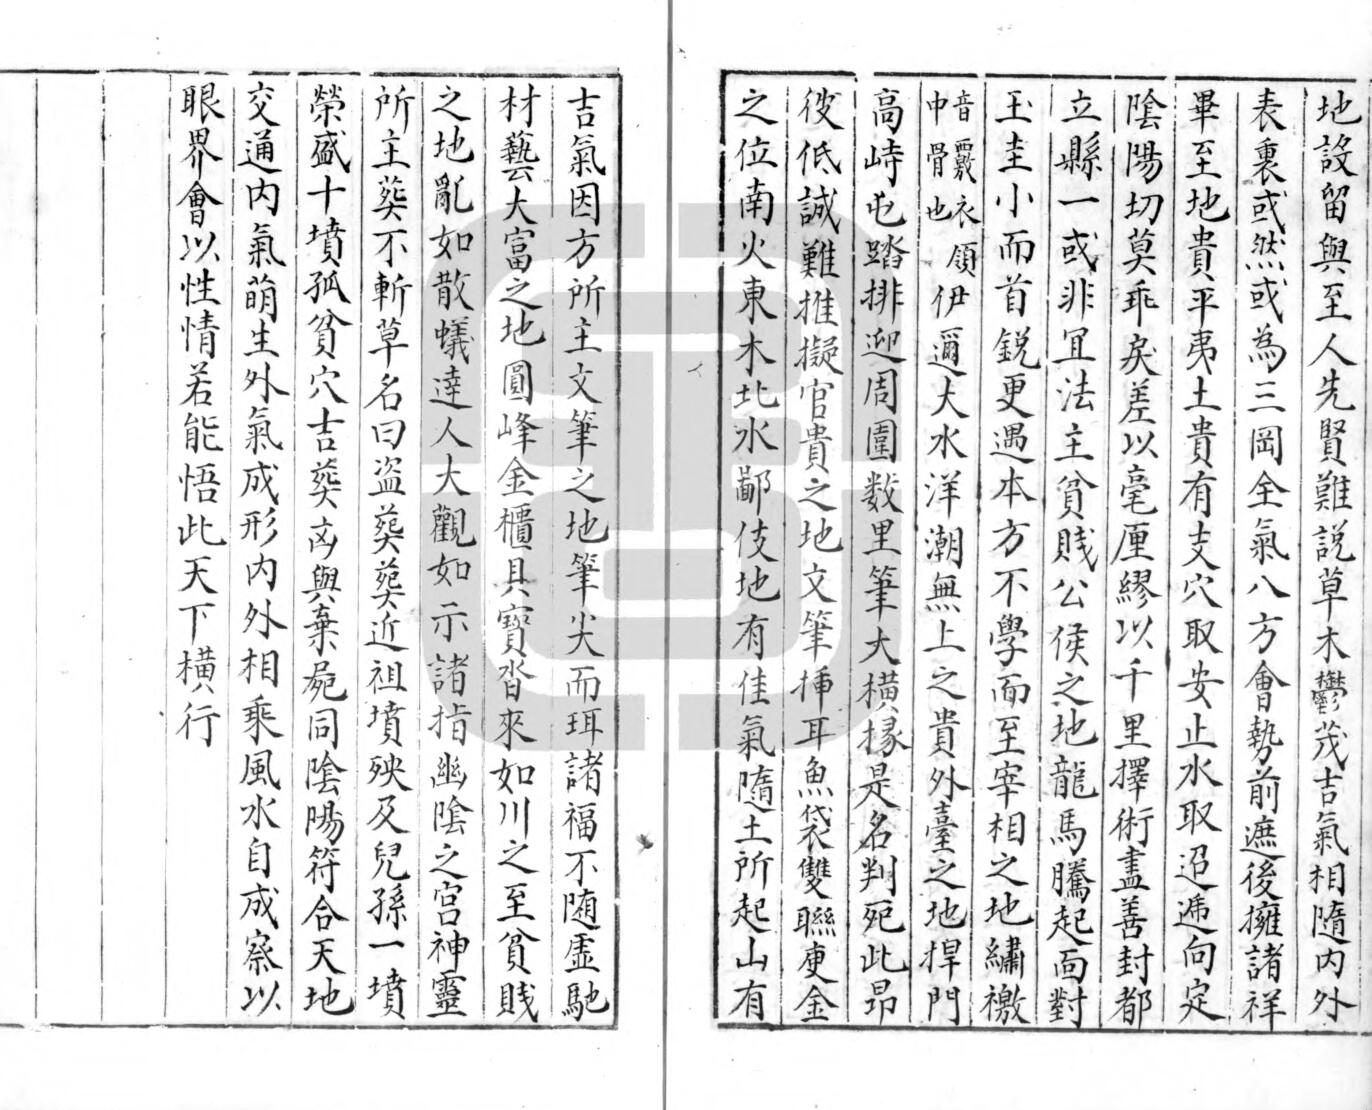 地設留與至人先賢難説草木鬱茂吉氣相隨内外
表裏或然或為三岡全氣八方會勢前遮後擁諸祥
畢至地貴平夷土貴有支穴取安止水取迢逓向定
陰陽切莫乖戾差以毫厘繆以千里擇術盡善封都
立縣一或非冝法主貧賤公侯之地龍馬騰起面對
玉圭小而首鋭更遇本方不學而至宰相之地繡㯢
音覈衣領
中骨也
伊邇大水洋潮無上之貴外臺之地捍門
高峙屯踏排迎周圍数里筆大横椽是名判死此昻
彼低誠難推擬官貴之地文筆揷耳魚袋雙聯庚金
之位南火東木北水鄙伎地有佳氣隨土所起山有
吉氣因方所主文筆之地筆尖而珥諸福不随虛馳
材藝大富之地圓峰金櫃具寳沓來如川之至貧賤
之地亂如散蟻逹人大觀如示諸指幽陰之宫神靈
所主葬不斬草名曰盗葬葬近祖墳殃及兒孫一墳
榮盛十墳孤貧穴吉葬凶與棄屍同陰陽符合天地
交通内氣萌生外氣成形内外相乘風水自成察以
眼界會以性情若能悟此天下横行